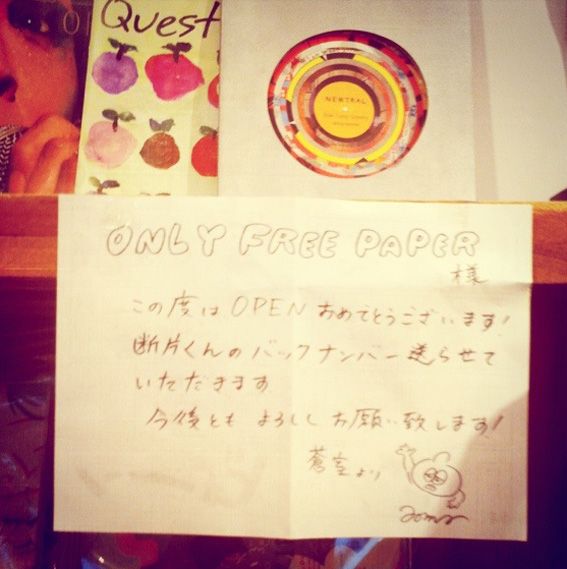 Quest
NEWTRAL
ONLY FREE PAPER
様
この度は OPEN おめでとうございます!
断片くんのバックナンバー送らせて
いただきます
今後とも よろしく お願い致します!
蒼室より